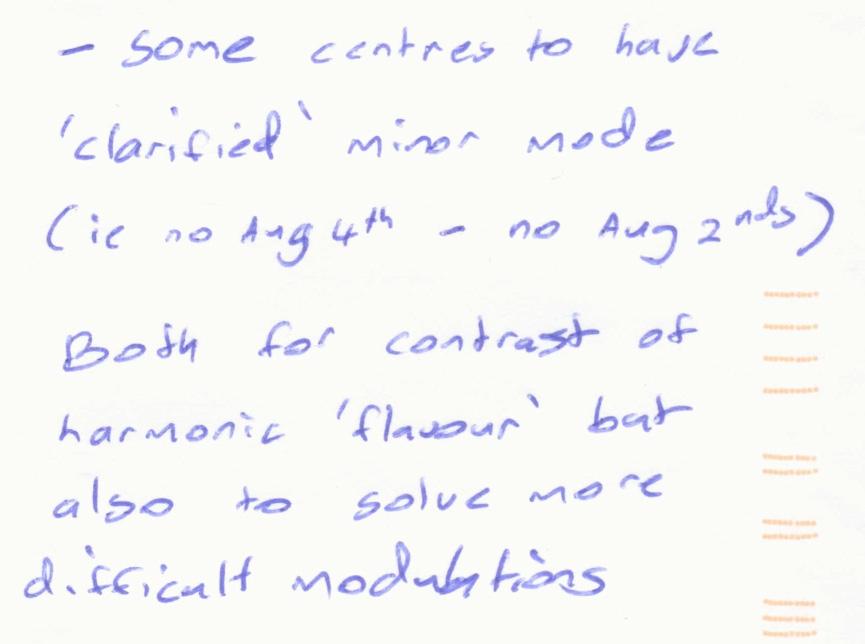 - some centres to have
'clarified' minor mode
(ie no Aug 4th - no Aug 2nds)
Both for contrast of
harmonic 'flavour' but
also to solve more
difficult modulations